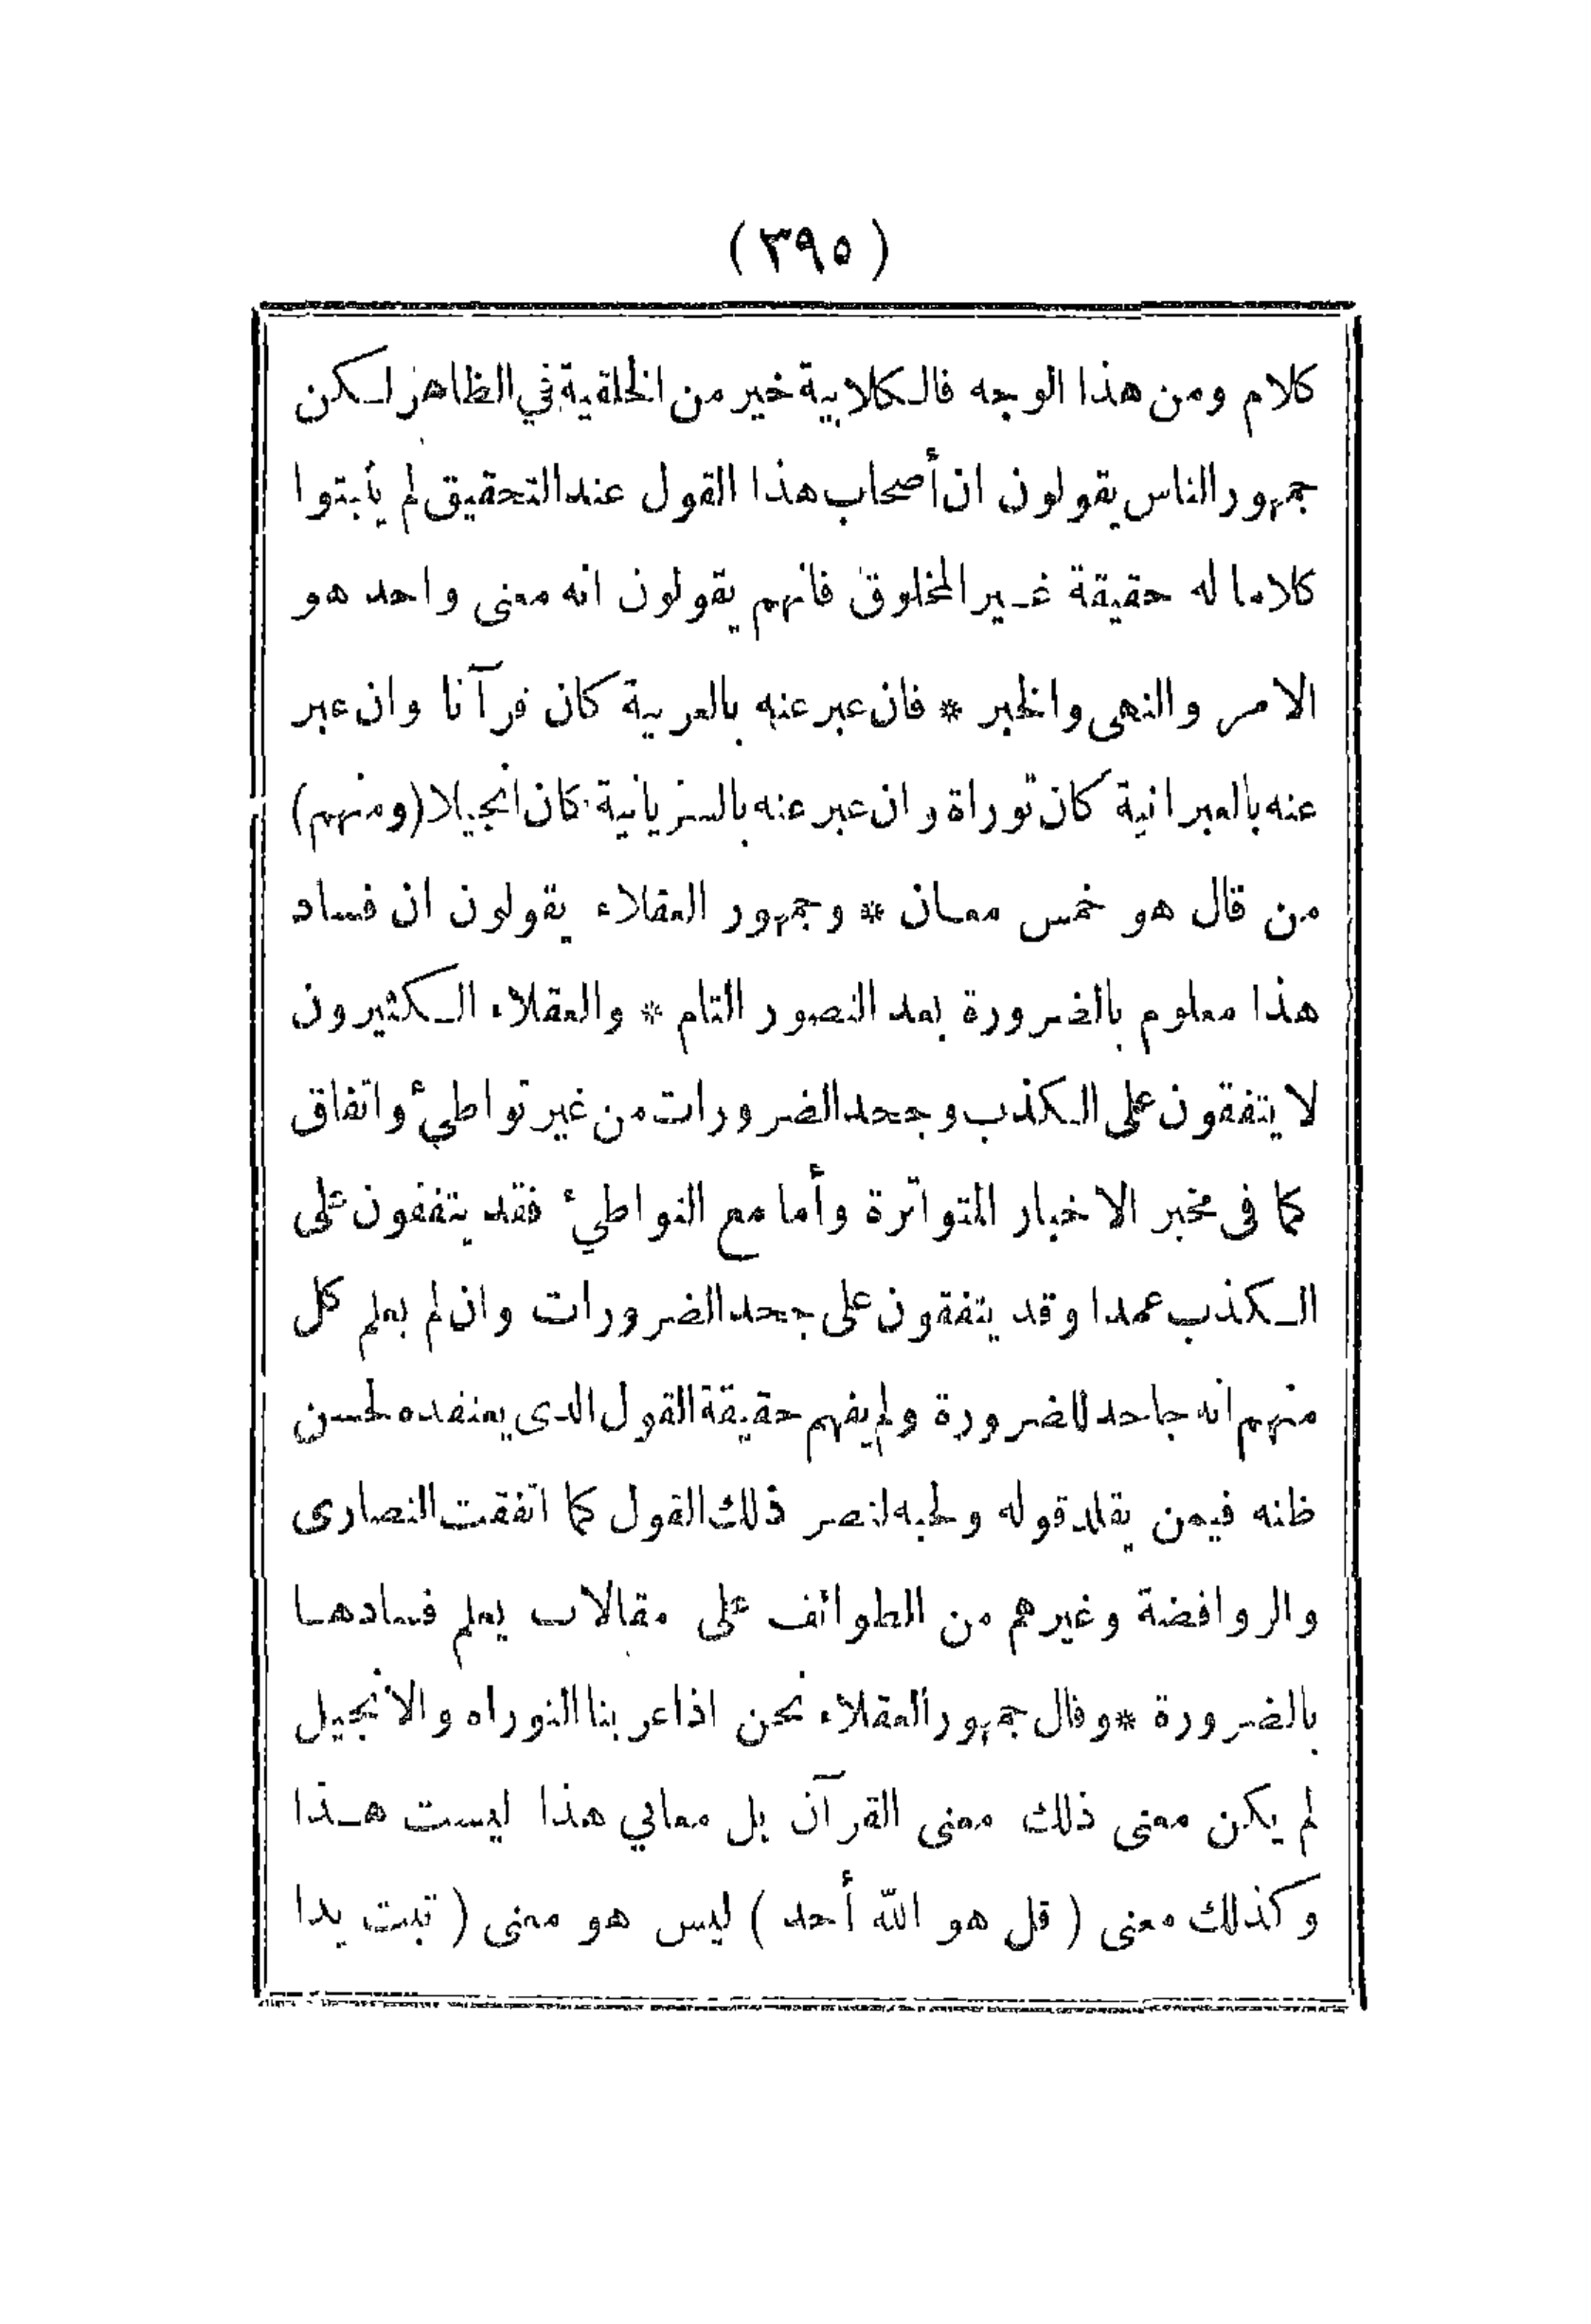 (٣٩٥)
كلام ومن هذا الوجه فالكلابية خير من الخلقية في الظاهر لكن
جمهور الناس يقولون ان أصحاب هذا القول عند التحقيق لم يثبتوا
كلاما له حقيقة غير المخلوق فانهم يقولون انه معنى واحد هو
الامر والنهى والخبر * فان عبر عنه بالعربية كان قرآنا وان عبر
عنه بالعبرانية كان توراة وان عبر عنه بالسريانية كان انجيلا (ومنهم)
من قال هو خمس معان * وجمهور العقلاء يقولون ان فساد
هذا معلوم بالضرورة بعد التصور التام * والعقلاء الكثيرون
لا يتفقون على الكذب وجحد الضرورات من غير تواطئ واتفاق
كما فى مخبر الاخبار المتواترة وأما مع التواطئ فقد يتفقون على
الكذب عمدا وقد يتفقون على جحد الضرورات وان لم يعلم كل
منهم انه جاحد للضرورة ولم يفهم حقيقة القول الذى يعتقده لحسن
ظنه فيمن يقلد قوله ولحبه لنصر ذلك القول كما اتفقت النصارى
والروافضة وغيرهم من الطوائف على مقالات يعلم فسادها
بالضرورة * وقال جمهور العقلاء نحن اذا عربنا التوراه والانجيل
لم يكن معنى ذلك معنى القرآن بل معاني هذا ليست هذا
وكذلك معنى ( قل هو الله أحد ) ليس هو معنى ( تبت يدا